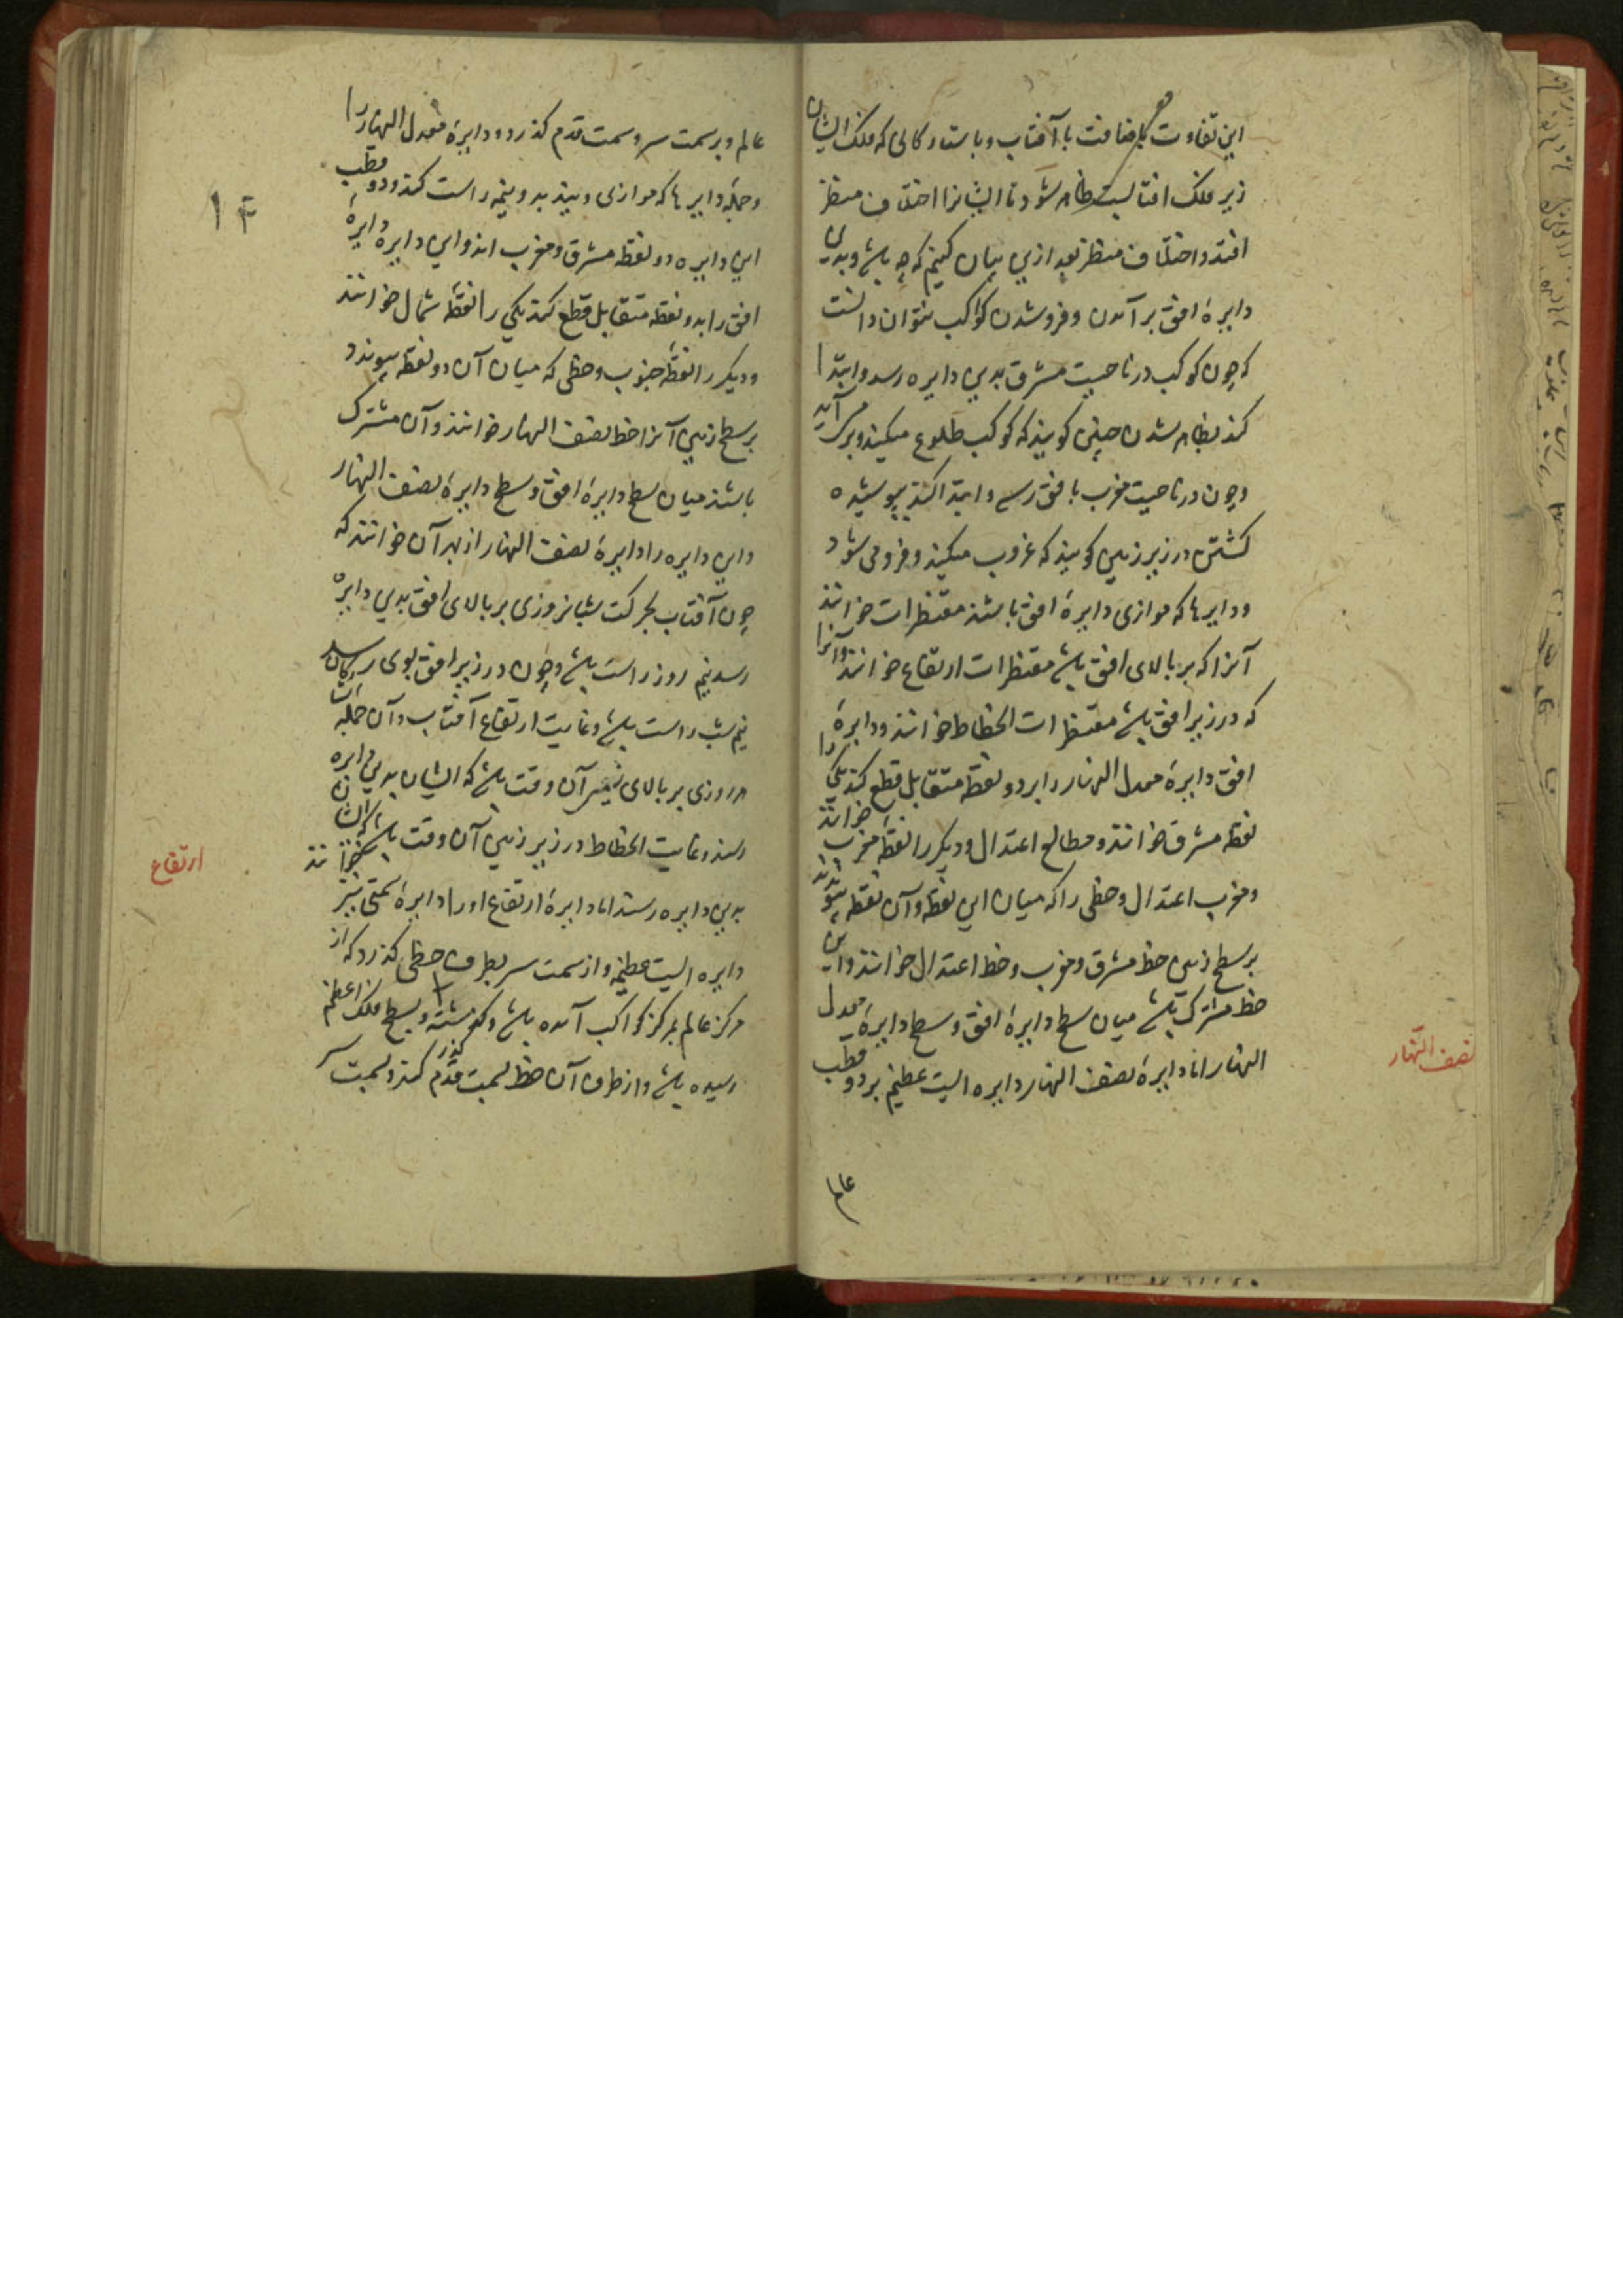 این تفاوت باضافت با آفتاب و با ستارگانی که فلک ایشان
زیر فلک افتابست ظاهر شود تا ایشانرا اختلاف منظر
افتد و اختلاف منظر بعد ازین بیان کنیم که چه باشد و بدین
دایرهٔ افق برآمدن و فروشدن کواکب بتوان دانست
که چون کوکب در ناحیت مشرق بدین دایره رسد و ابتدا
کند بظاهر شدن چنین کویند که کوکب طلوع میکند و برمی آید
و چون در ناحیت مغرب بافق رسد و ابتدا کند بپوشیده
کشتن در زیر زمین کویند که غروب میکند و فرو می شود
و دایرها که موازی دایرهٔ افق باشند مقنطرات خوانند
آنرا که بر بالای افق باشد مقنطرات ارتفاع خوانند و آنرا
که در زیر افق باشد مقنطرات انحطاط خوانند و دایرهٔ
افق دایرهٔ معدل النهار را بر دو نقطه متقابل قطع کند یکی را
نقطه مشرق خوانند و مطالع اعتدال و دیکر را نقطهٔ مغرب خوانند
و مغرب اعتدال و خطی را که میان این نقطه و آن نقطه پیوندند
بر سطح زمین خط مشرق و مغرب و خط اعتدال خوانند و این
خط مشترک باشد میان سطح دایرهٔ افق و سطح دایرهٔ معدل
النهار اما دایرهٔ نصف النهار دایره ایست عظیم بر دو قطب
نصف النهار
عالم
عالم و بر سمت سر و سمت قدم کذرد و دایرهٔ معدل النهار را
و جمله دایرها که موازی ویند بدو نیمه راست کند و دو قطب
این دایره دو نقطه مشرق و مغرب اند و این دایره دایرهٔ
افق را بدو نقطه متقابل قطع کند یکی را نقطهٔ شمال خوانند
و دیکر را نقطهٔ جنوب و خطی که میان آن دو نقطه پیوندد
بر سطح زمین آنرا خط نصف النهار خوانند و آن مشترک
باشد میان سطح دایرهٔ افق و سطح دایرهٔ نصف النهار
و این دایره را دایرهٔ نصف النهار از بهر آن خوانند که
چون آفتاب بحرکت شبانروزی بر بالای افق بدین دایره
رسد نیم روز راست باشد و چون در زیر افق بوی رسد
نیم شب راست باشد و غایت ارتفاع آفتاب و آن جمله ستارکان
هر روزی بر بالای زمین آن وقت باشد که ایشان بدین دایره
رسند و غایت انحطاط در زیر زمین آن وقت باشد که ایشان
بدین دایره رسند اما دایرهٔ ارتفاع او را دایرهٔ سمتی نیز خوانند
ارتفاع
دایره ایست عظیمه و از سمت سر بطرف خطی کذرد که از
مرکز عالم بمرکز کواکب آمده باشد و کذشته و بسطح فلک اعظم
رسیده باشد و از طرف آن خط بسمت قدم کذر کند و بسمت سر
۱۴